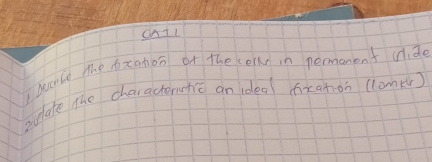 CAT 1
1. Describe the fixation of the cells in permanent slide
2. state the characteristic an ideal fixation (10mks)